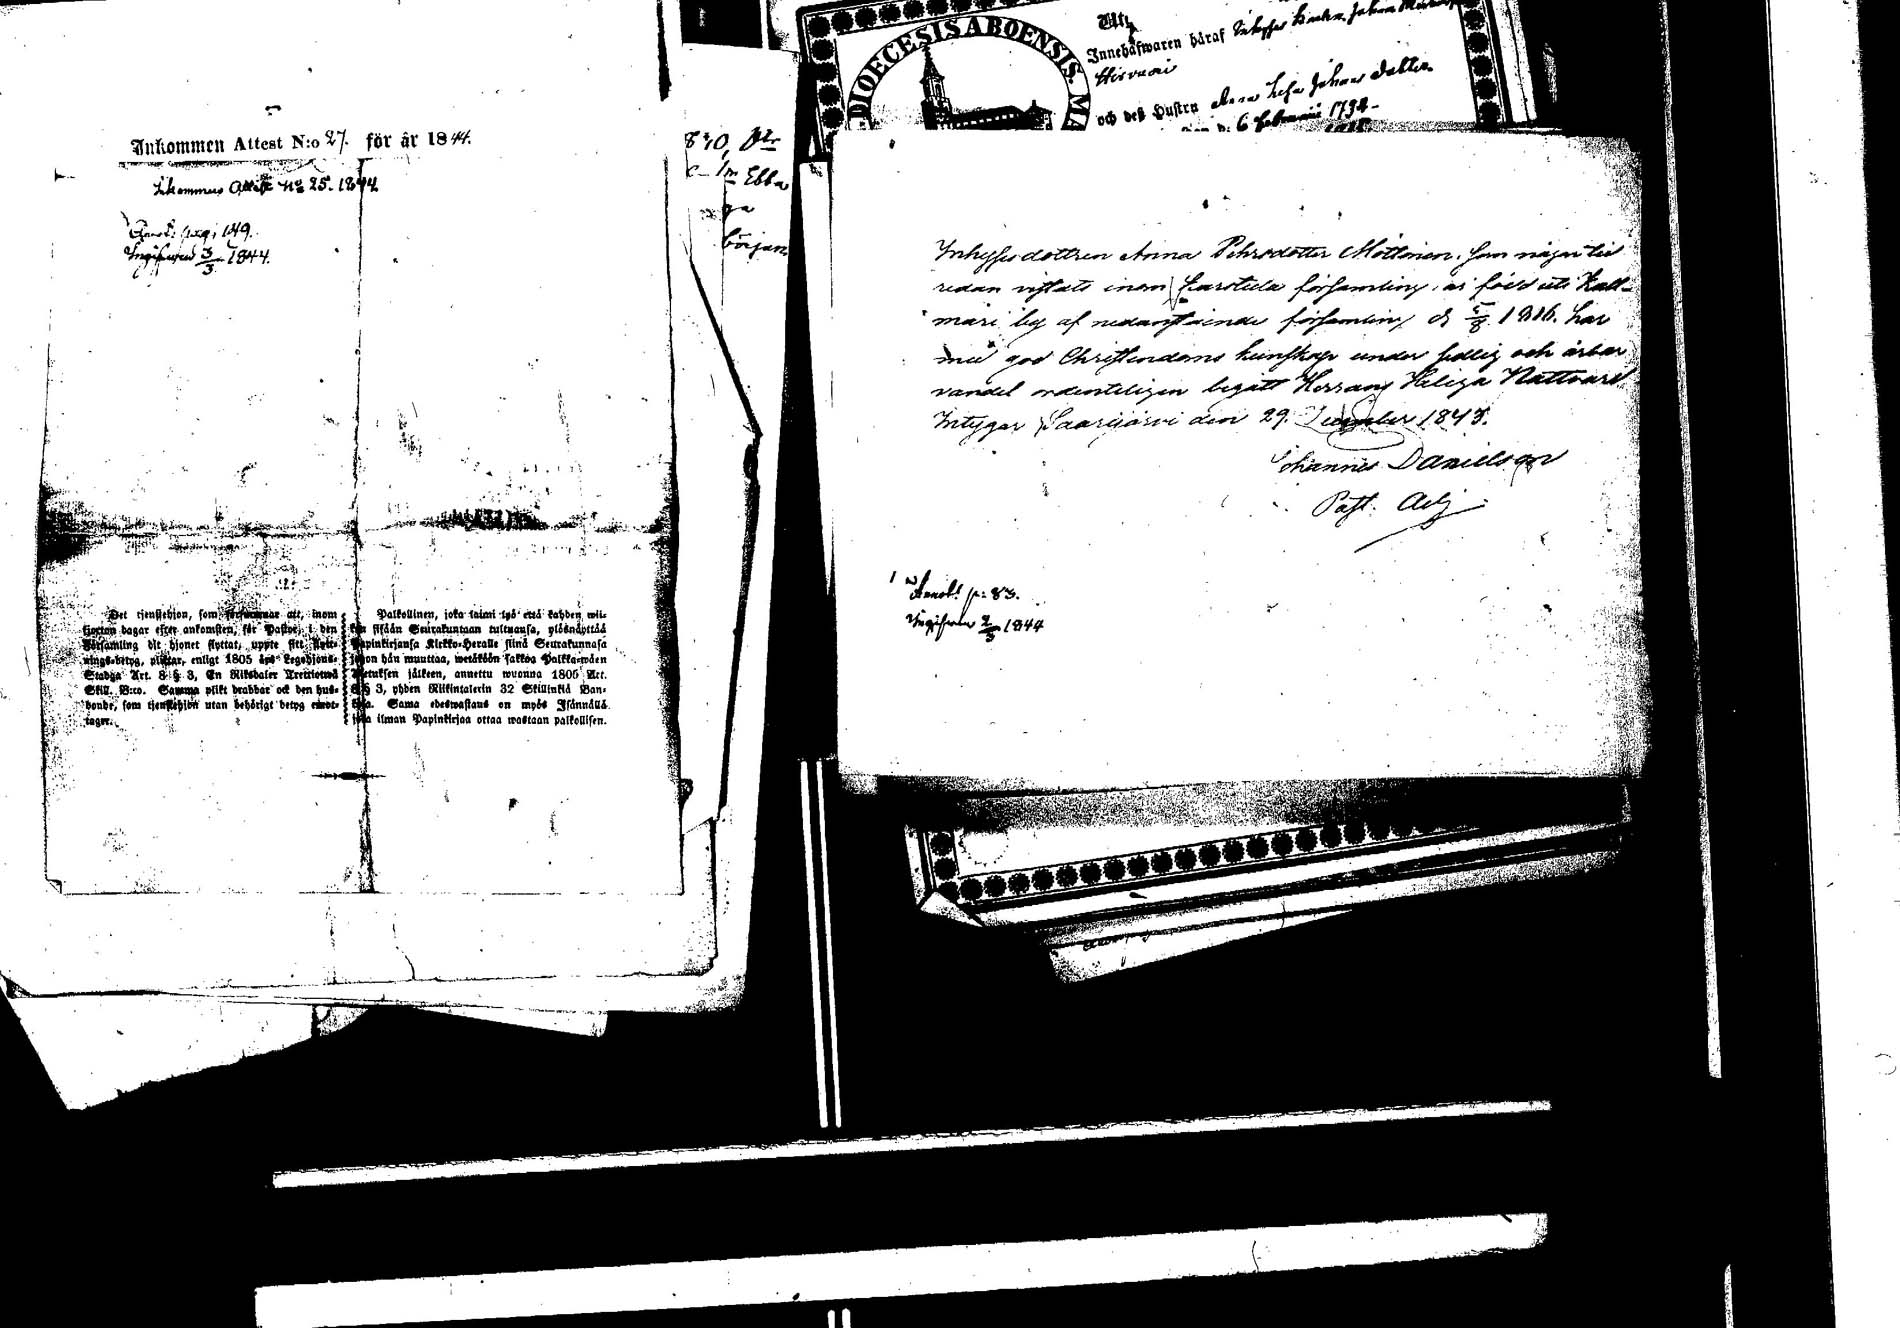 Inkommen Attest N:o 27. för år 1844.
Inkommen Attest No 25. 1844.
Annot: pag: 149.
Ingifven 3/3 1844.
Det tjenstehjon, som försummar att, inom
fjorton dagar efter ankomsten, för Pastor i den
Församling dit hjonet flyttat, uppte sitt flytt-
nings-betyg, pliktar, enligt 1805 års Legohjons-
Stadga Art. 8 § 3, En Riksdaler Trettiotwå
Skill. B:co. Samma plikt drabbar ock den hus-
bonde, som tjenstehjon utan behörigt betyg emot-
tager.
Palkollinen, joka laimi lyö että kahden wii-
kon sisään Seurakuntaan tultuansa, ylösnäyttää
Papinkirjansa Kirkko-Heralle siinä Seurakunnasa
johon hän muuttaa, wetäköön sakkoa Palkka-wäen
Asetuksen jälkeen, annettu wuonna 1805 Art.
8 § 3, yhden Riikintalerin 32 Skillinkiä Ban-
kosa. Sama edeswastaus on myös Isännällä
joka ilman Papinkirjaa ottaa wastaan palkollisen.
Ebba
början
DIOECESIS ABOENSIS. MA
Innehafwaren häraf Inhyses Johan
och deß Hustru Anna Johans dotter
d. 6 Februarii 1792
Inhyses dottren Anna Pehrsdotter Möttönen, som någon tid
redan vistats inom Karstula församling, är född uti Kall-
mari by af nedanstående församling d. 5/8 1816. har
med god Christendoms kunskap under sedlig och ärbar
vandel ordenteligen begått Herrans Heliga Nattvard
Intygar Saarijärvi den 29. December 1843.
Johannes Danielson
Past. Adj.
Annot: p: 83.
Ingifven 2/3 1844